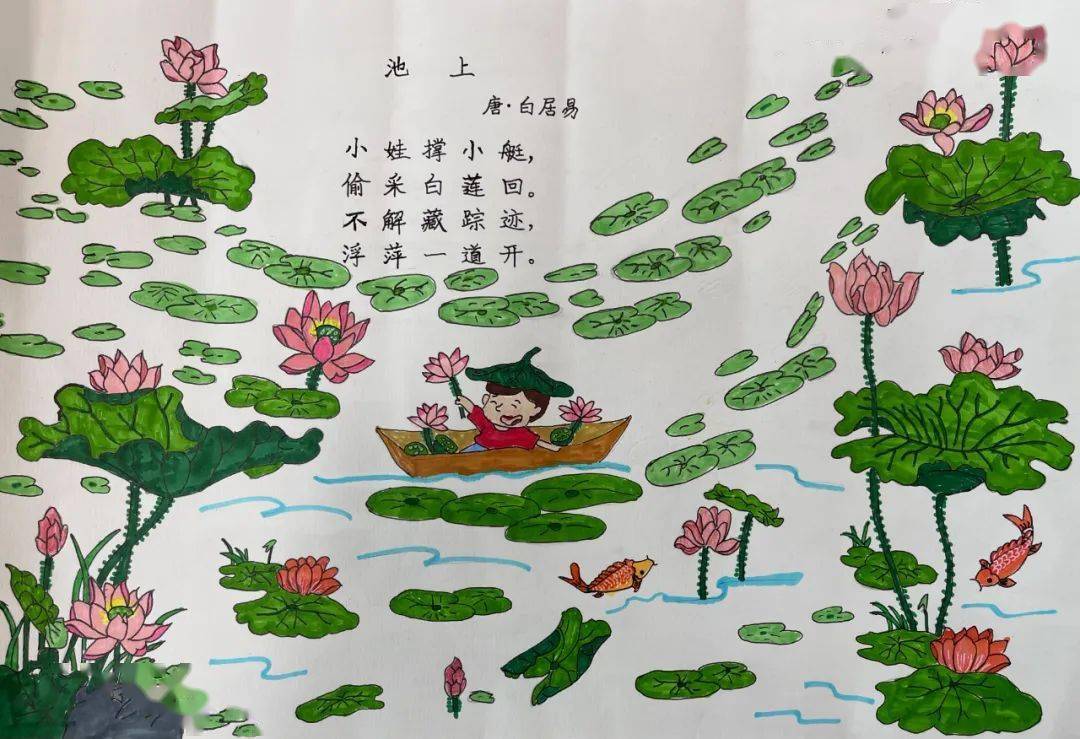 池 上
唐·白居易
小娃撑小艇，
偷采白莲回。
不解藏踪迹，
浮萍一道开。